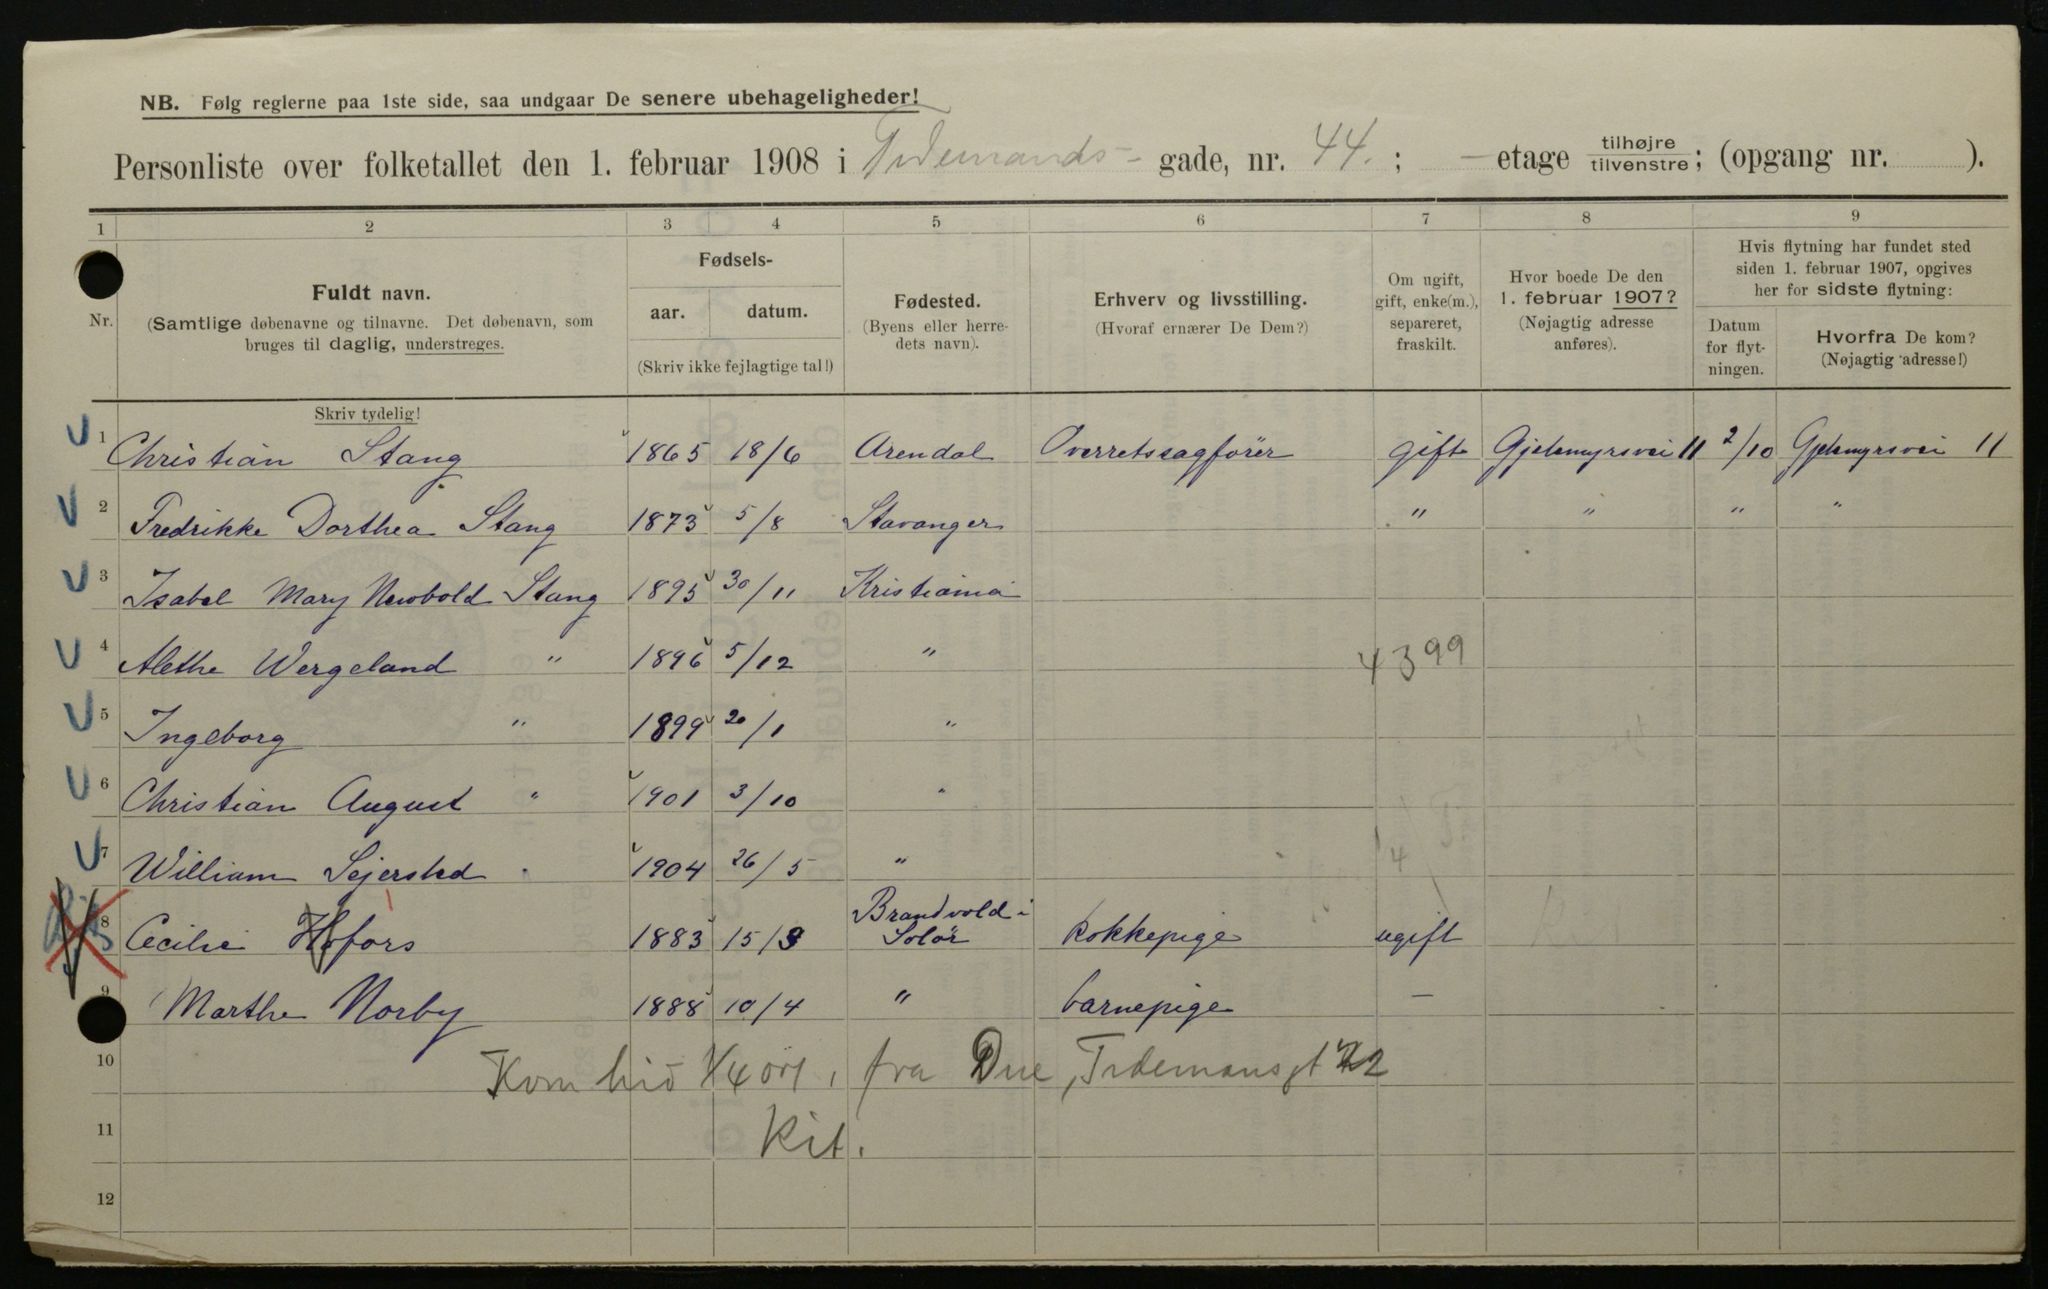 NB. Følg reglerne paa 1ste side, saa undgaar De senere ubehageligheder!
Personliste over folketallet den 1. februar 1908 i Tidemands- gade, nr. 44. ; — etage tilhøjre tilvenstre; (opgang nr. ).
1 2 3 4 5 6 7 8 9
Nr.
Fuldt navn.
(Samtlige døbenavne og tilnavne. Det døbenavn, som
bruges til daglig, understreges.
Skriv tydelig!
Fødsels-
aar. datum.
(Skriv ikke fejlagtige tal!)
Fødested.
(Byens eller herre-
dets navn).
Erhverv og livsstilling.
(Hvoraf ernærer De Dem?)
Om ugift,
gift, enke(m.),
separeret,
fraskilt.
Hvor boede De den
1. februar 1907?
(Nøjagtig adresse
anføres).
Hvis flytning har fundet sted
siden 1. februar 1907, opgives
her for sidste flytning:
Datum
for flyt-
ningen.
Hvorfra De kom?
(Nøjagtig adresse!)
1 Christian Stang 1865 18/6 Arendal Overretssagfører gift Gjetemyrsvei 11 2/10 Gjetemyrsvei 11
2 Fredrikke Dorthea Stang 1873 5/8 Stavanger " " " "
3 Isabel Mary Newbold Stang 1895 30/11 Kristiania
4 Alethe Wergeland " 1896 5/12 " 4399
5 Ingeborg " 1899 20/1 "
6 Christian August " 1901 3/10 "
7 William Sejersted " 1904 26/5 "
8 Cecilie Hofors 1883 15/9 Brandvold i Solør kokkepige ugift
9 Marthe Norby 1888 10/4 " barnepige —
10 Kom hid 1/4 07, fra Due, Tidemansgt 22
11 Kit.
12